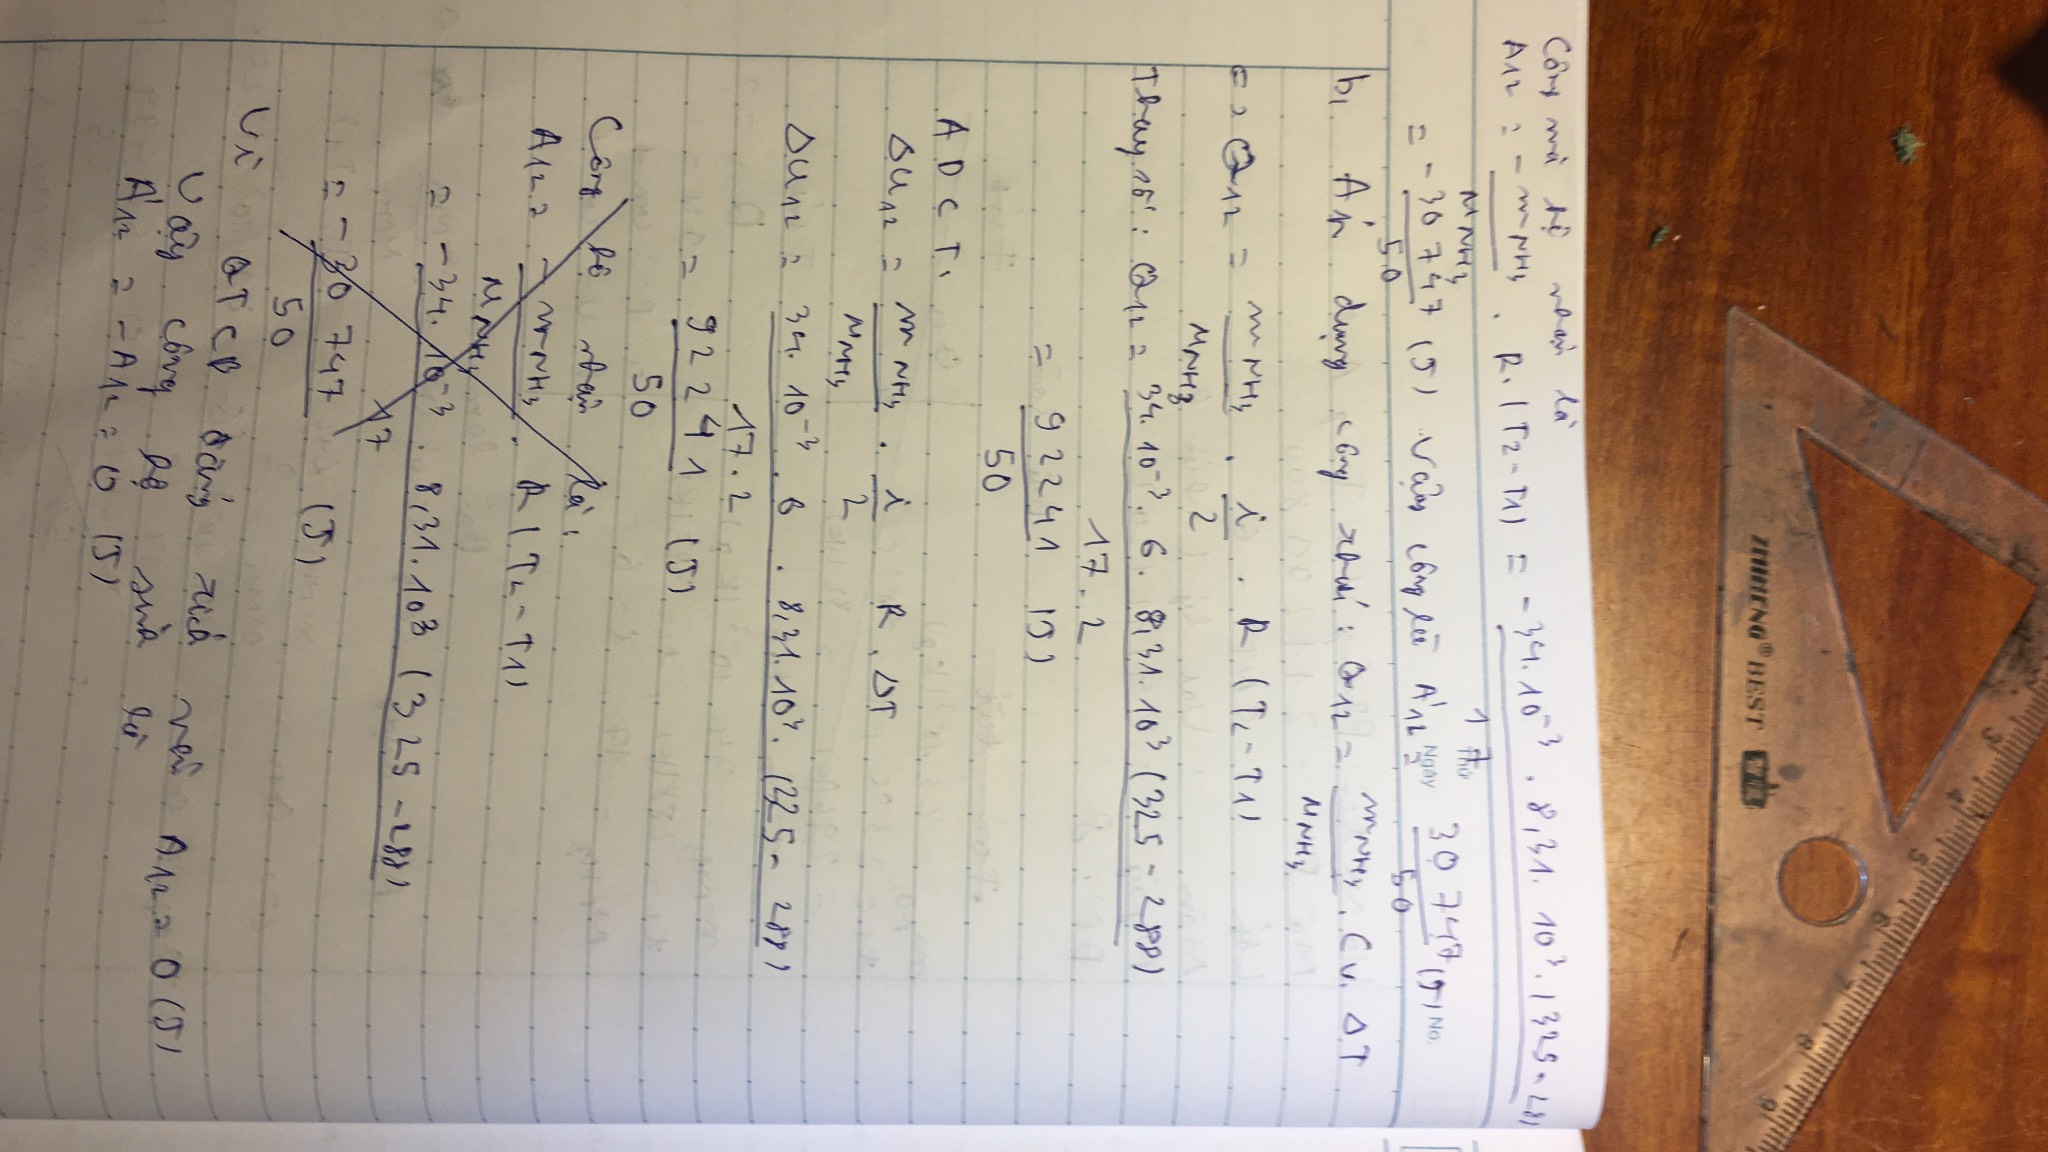 3 4 5 6 7 8 9
BEST
Công mà hệ nhận là
A12 = - mNH3 / MNH3 . R.(T2-T1) = -34.10^-3 . 8,31. 10^3 . (325-288) / 17
= -30747 / 50 (J) Vậy công là A'12 = 30747 / 50 (J)
Thứ
Ngày No.
b, Áp dụng công thức: Q12 = mNH3 / MNH3 . Cv. ΔT
=> Q12 = mNH3 / MNH3 . i / 2 . R (T2-T1)
Thay số: Q12 = 34.10^-3 . 6. 8,31.10^3 (325 - 288) / 17. 2
= 92241 / 50 (J)
ADCT:
ΔU12 = mNH3 / MNH3 . i / 2 R . ΔT
ΔU12 = 34. 10^-3 . 6 . 8,31.10^3. (325 - 288) / 17. 2
= 92241 / 50 (J)
Công hệ nhận là:
A12 = - mNH3 / MNH3 . R(T2-T1)
= -34. 10^-3 . 8,31.10^3 (325-288) / 17
= -30747 / 50 (J)
Vì QTCB đẳng tích nên A12 = 0 (J)
Vậy công hệ sinh là
A'12 = -A12 = 0 (J)